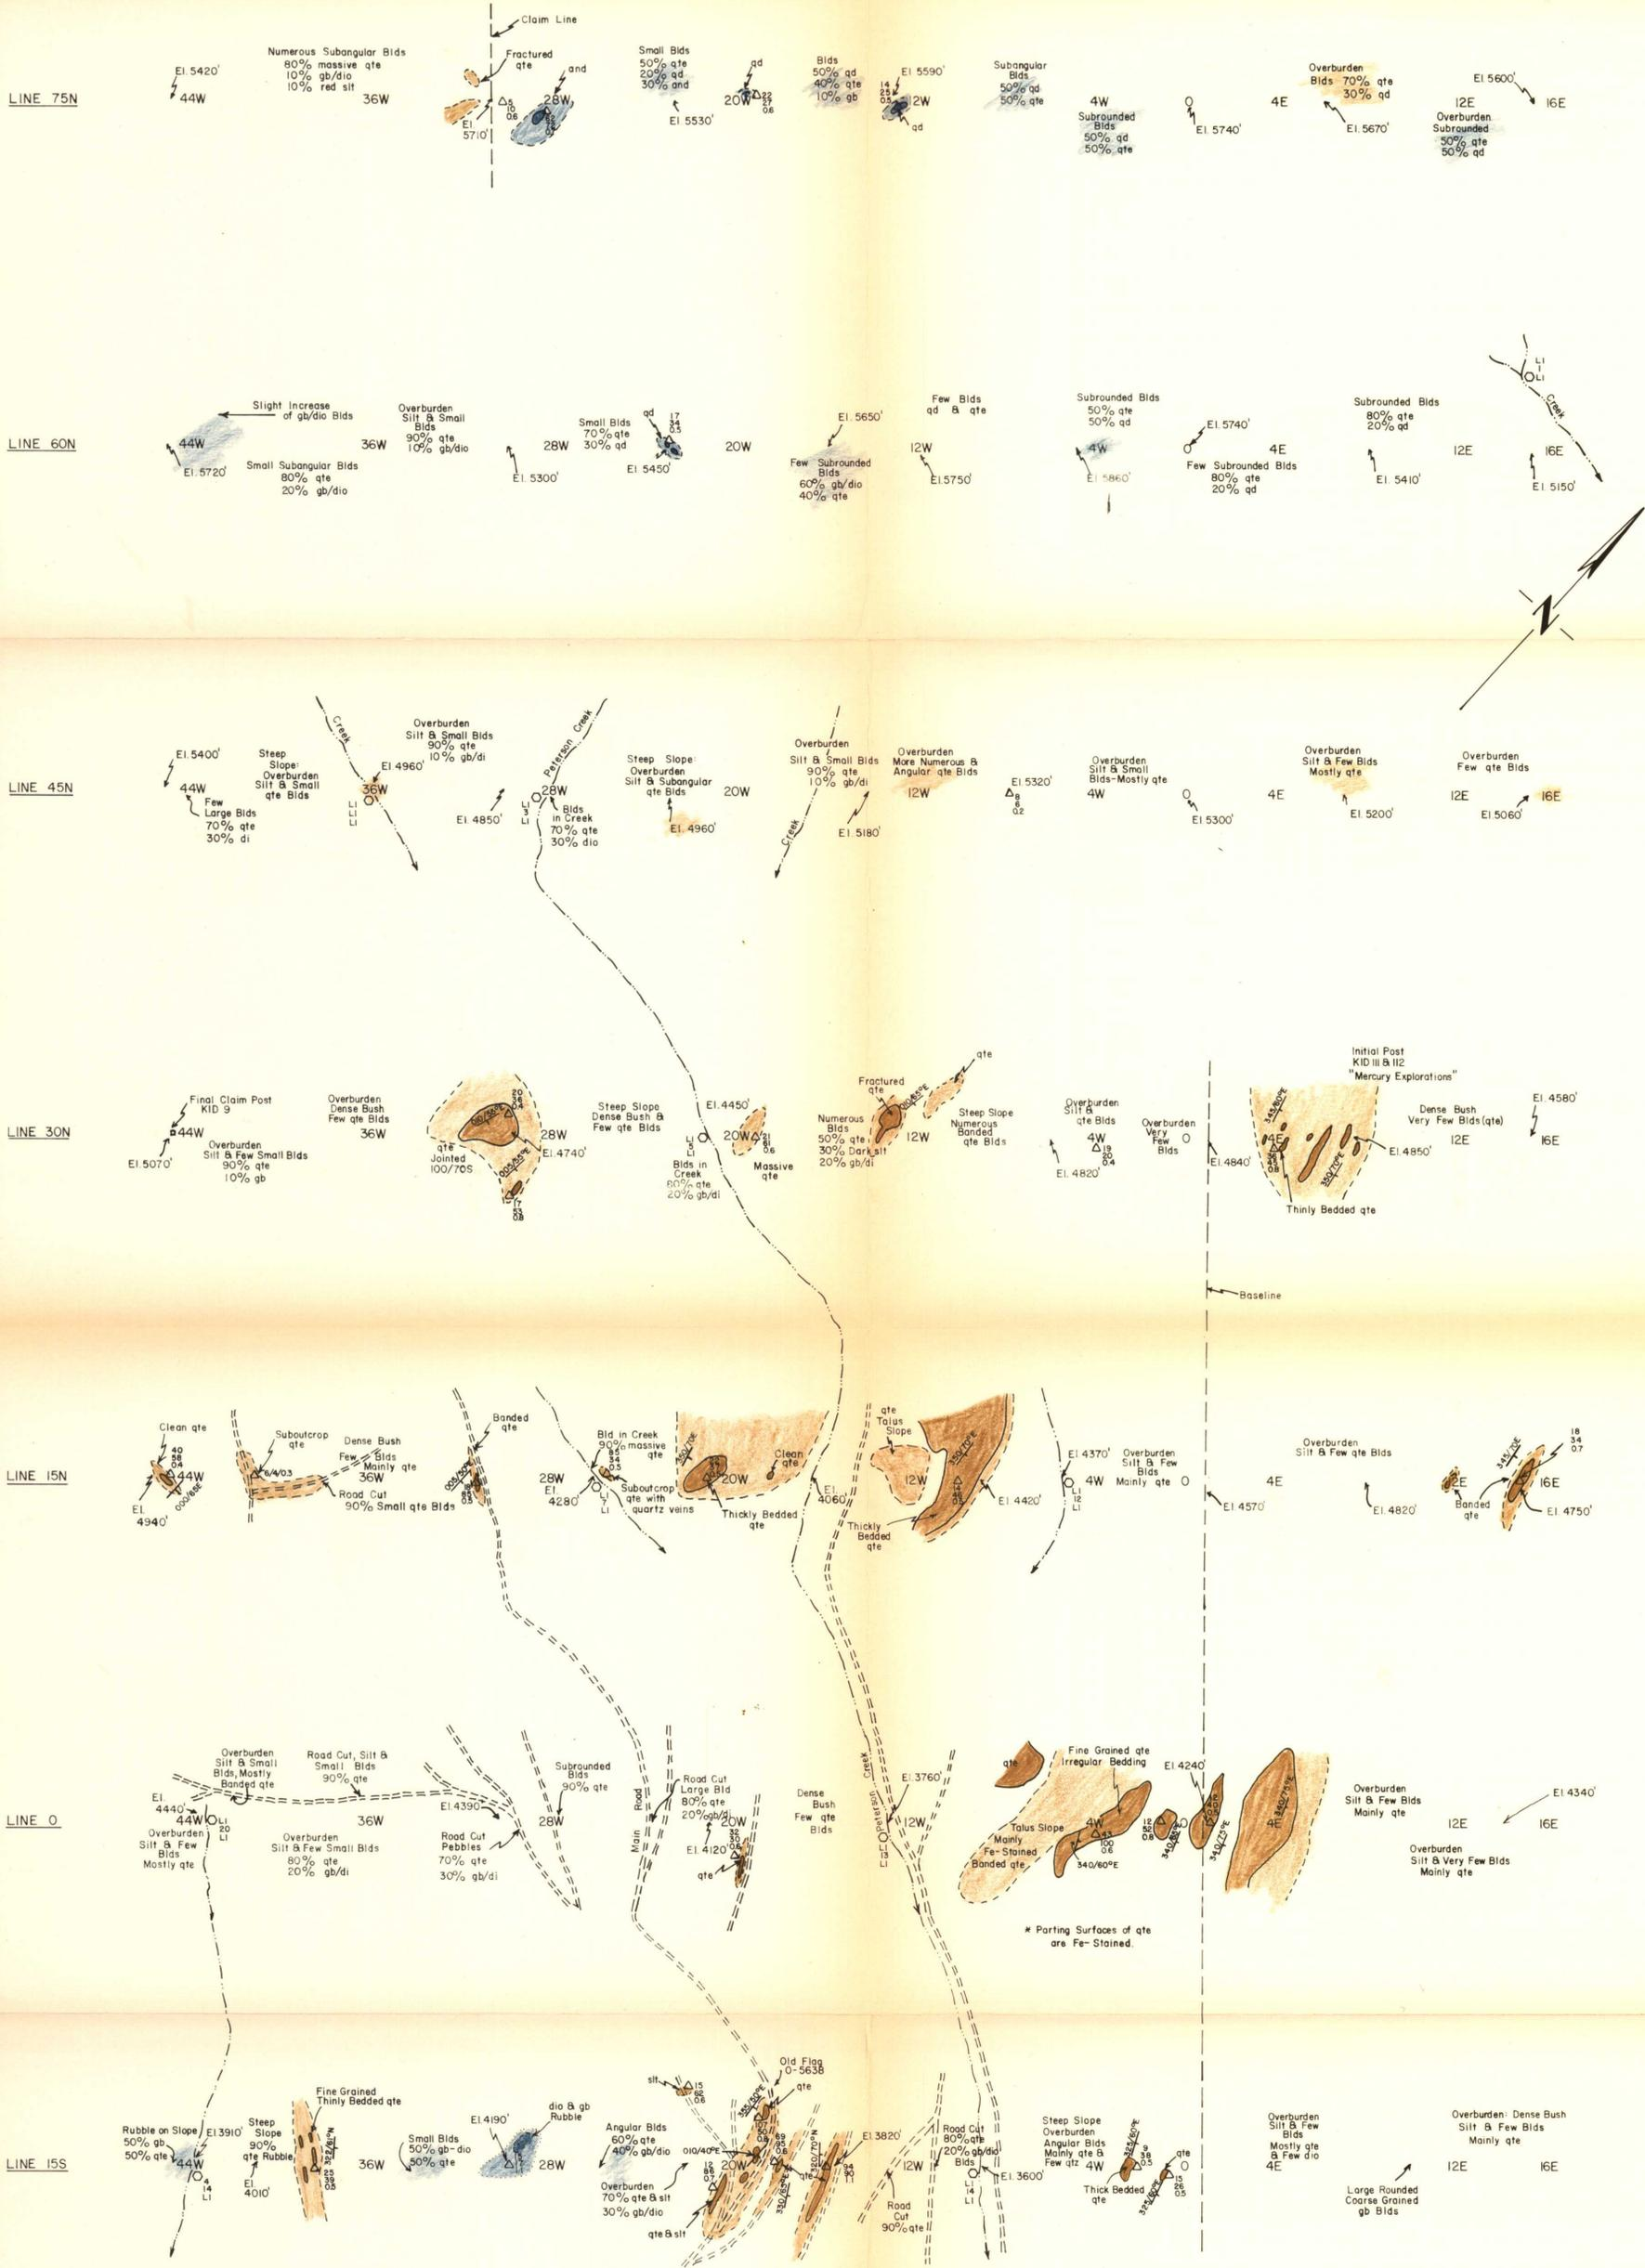 Claim Line
Numerous Subangular Blds
80% massive qte
10% gb/dio
10% red slt
El. 5420'
LINE 75N
44W
36W
Fractured
qte
El.
5710'
5
10
0.6
and
28W
Small Blds
50% qte
20% qd
30% and
El. 5530'
qd
20W
22
27
0.6
Blds
50% qd
40% qte
10% gb
14
25
0.5
El. 5590'
12W
qd
Subangular
Blds
50% qd
50% qte
4W
Subrounded
Blds
50% qd
50% qte
O
El. 5740'
4E
Overburden
Blds 70% qte
30% qd
El. 5670'
El. 5600'
12E
16E
Overburden
Subrounded
50% qte
50% qd
LINE 60N
Slight Increase
of gb/dio Blds
44W
El. 5720'
Small Subangular Blds
80% qte
20% gb/dio
36W
Overburden
Silt & Small
Blds
90% qte
10% gb/dio
El. 5300'
28W
Small Blds
70% qte
30% qd
qd
17
34
0.5
El. 5450'
20W
El. 5650'
Few Subrounded
Blds
60% gb/dio
40% qte
Few Blds
qd & qte
12W
El. 5750'
Subrounded Blds
50% qte
50% qd
4W
El. 5860'
El. 5740'
O
Few Subrounded Blds
80% qte
20% qd
4E
Subrounded Blds
80% qte
20% qd
El. 5410'
12E
16E
El. 5150'
L1
1
L1
Creek
N
LINE 45N
El. 5400'
44W
Few
Large Blds
70% qte
30% di
Steep
Slope:
Overburden
Silt & Small
qte Blds
Creek
El. 4960'
36W
L1
L1
L1
Overburden
Silt & Small Blds
90% qte
10% gb/di
El. 4850'
Peterson Creek
28W
L1
3
L1
Blds
in Creek
70% qte
30% dio
Steep Slope:
Overburden
Silt & Subangular
qte Blds
El. 4960'
20W
Overburden
Silt & Small Blds
90% qte
10% gb/di
Creek
El. 5180'
Overburden
More Numerous &
Angular qte Blds
12W
El. 5320'
8
6
0.2
Overburden
Silt & Small
Blds-Mostly qte
4W
O
El. 5300'
4E
Overburden
Silt & Few Blds
Mostly qte
El. 5200'
Overburden
Few qte Blds
12E
El. 5060'
16E
LINE 30N
Final Claim Post
KID 9
44W
El. 5070'
Overburden
Silt & Few Small Blds
90% qte
10% gb
Overburden
Dense Bush
Few qte Blds
36W
qte
Jointed
100/70S
005/55°E
17
53
0.8
28W
El. 4740'
Steep Slope
Dense Bush &
Few qte Blds
El. 4450'
L1
5
L1
Blds in
Creek
80% qte
20% gb/di
20W
Massive
qte
Fractured
qte
Numerous
Blds
50% qte
30% Dark slt
20% gb/di
12W
qte
Steep Slope
Numerous
Banded
qte Blds
Overburden
Silt &
qte Blds
4W
19
20
0.4
El. 4820'
Overburden
Very
Few
Blds
O
El. 4840'
345/60°E
4E
350/70°E
Thinly Bedded qte
El. 4850'
Initial Post
KID 111 & 112
"Mercury Explorations"
Dense Bush
Very Few Blds (qte)
12E
El. 4580'
16E
Baseline
LINE 15N
Clean qte
40
58
0.4
44W
000/65E
El.
4940'
Suboutcrop
qte
6/4/0.3
Dense Bush
Few Blds
Mainly qte
36W
Road Cut
90% Small qte Blds
Banded
qte
28W
El.
4280'
Bld in Creek
90% massive
qte
85
34
0.5
Suboutcrop
qte with
quartz veins
L1
7
L1
350/70E
20W
Clean
qte
Thickly Bedded
qte
El.
4060'
qte
Talus
Slope
12W
Thickly
Bedded
qte
350/70°E
El. 4420'
El. 4370'
4W
L1
12
L1
Overburden
Silt & Few
Blds
Mainly qte
O
El. 4570'
4E
Overburden
Silt & Few qte Blds
El. 4820'
12E
Banded
qte
345/70E
18
34
0.7
16E
El. 4750'
LINE 0
Overburden
Silt & Small
Blds, Mostly
Banded qte
El.
4440'
44W
L1
20
L1
Overburden
Silt & Few
Blds
Mostly qte
Road Cut, Silt &
Small Blds
90% qte
36W
Overburden
Silt & Few Small Blds
80% qte
20% gb/di
El. 4390'
Road Cut
Pebbles
70% qte
30% gb/di
28W
Subrounded
Blds
90% qte
Main Road
Road Cut
Large Bld
80% qte
20% gb/di
20W
El. 4120'
qte
Dense
Bush
Few qte
Blds
Peterson Creek
El. 3760'
L1
13
L1
12W
qte
Fine Grained qte
Irregular Bedding
Talus Slope
Mainly
Fe-Stained
Banded qte
4W
43
100
0.6
340/60°E
12
52
0.8
El. 4240'
340/75°E
4E
340/75°E
* Parting Surfaces of qte
are Fe-Stained.
Overburden
Silt & Few Blds
Mainly qte
12E
Overburden
Silt & Very Few Blds
Mainly qte
El. 4340'
16E
LINE 15S
Rubble on Slope
50% gb
50% qte
El 3910'
44W
4
14
L1
Steep
Slope
90%
qte Rubble
El.
4010'
Fine Grained
Thinly Bedded qte
322/81°N
25
39
0.5
36W
Small Blds
50% gb-dio
50% qte
El. 4190'
dio & gb
Rubble
28W
Angular Blds
60% qte
40% gb/dio
Overburden
70% qte & slt
30% gb/dio
qte & slt
slt
15
62
0.6
Old Flag
0-5638
qte
355/50°E
010/40°E
20W
330/65°E
qte
320/70°N
El. 3820'
12W
Road
Cut
90% qte
Road Cut
80% qte
20% gb/dio
Blds
L1
14
L1
El. 3600'
Steep Slope
Overburden
Angular Blds
Mainly qte &
Few qtz
4W
325/60°E
9
38
0.5
Thick Bedded
qte
325/60°E
qte
O
15
26
0.5
Overburden
Silt & Few
Blds
Mostly qte
& Few dio
4E
Large Rounded
Coarse Grained
gb Blds
Overburden: Dense Bush
Silt & Few Blds
Mainly qte
12E
16E